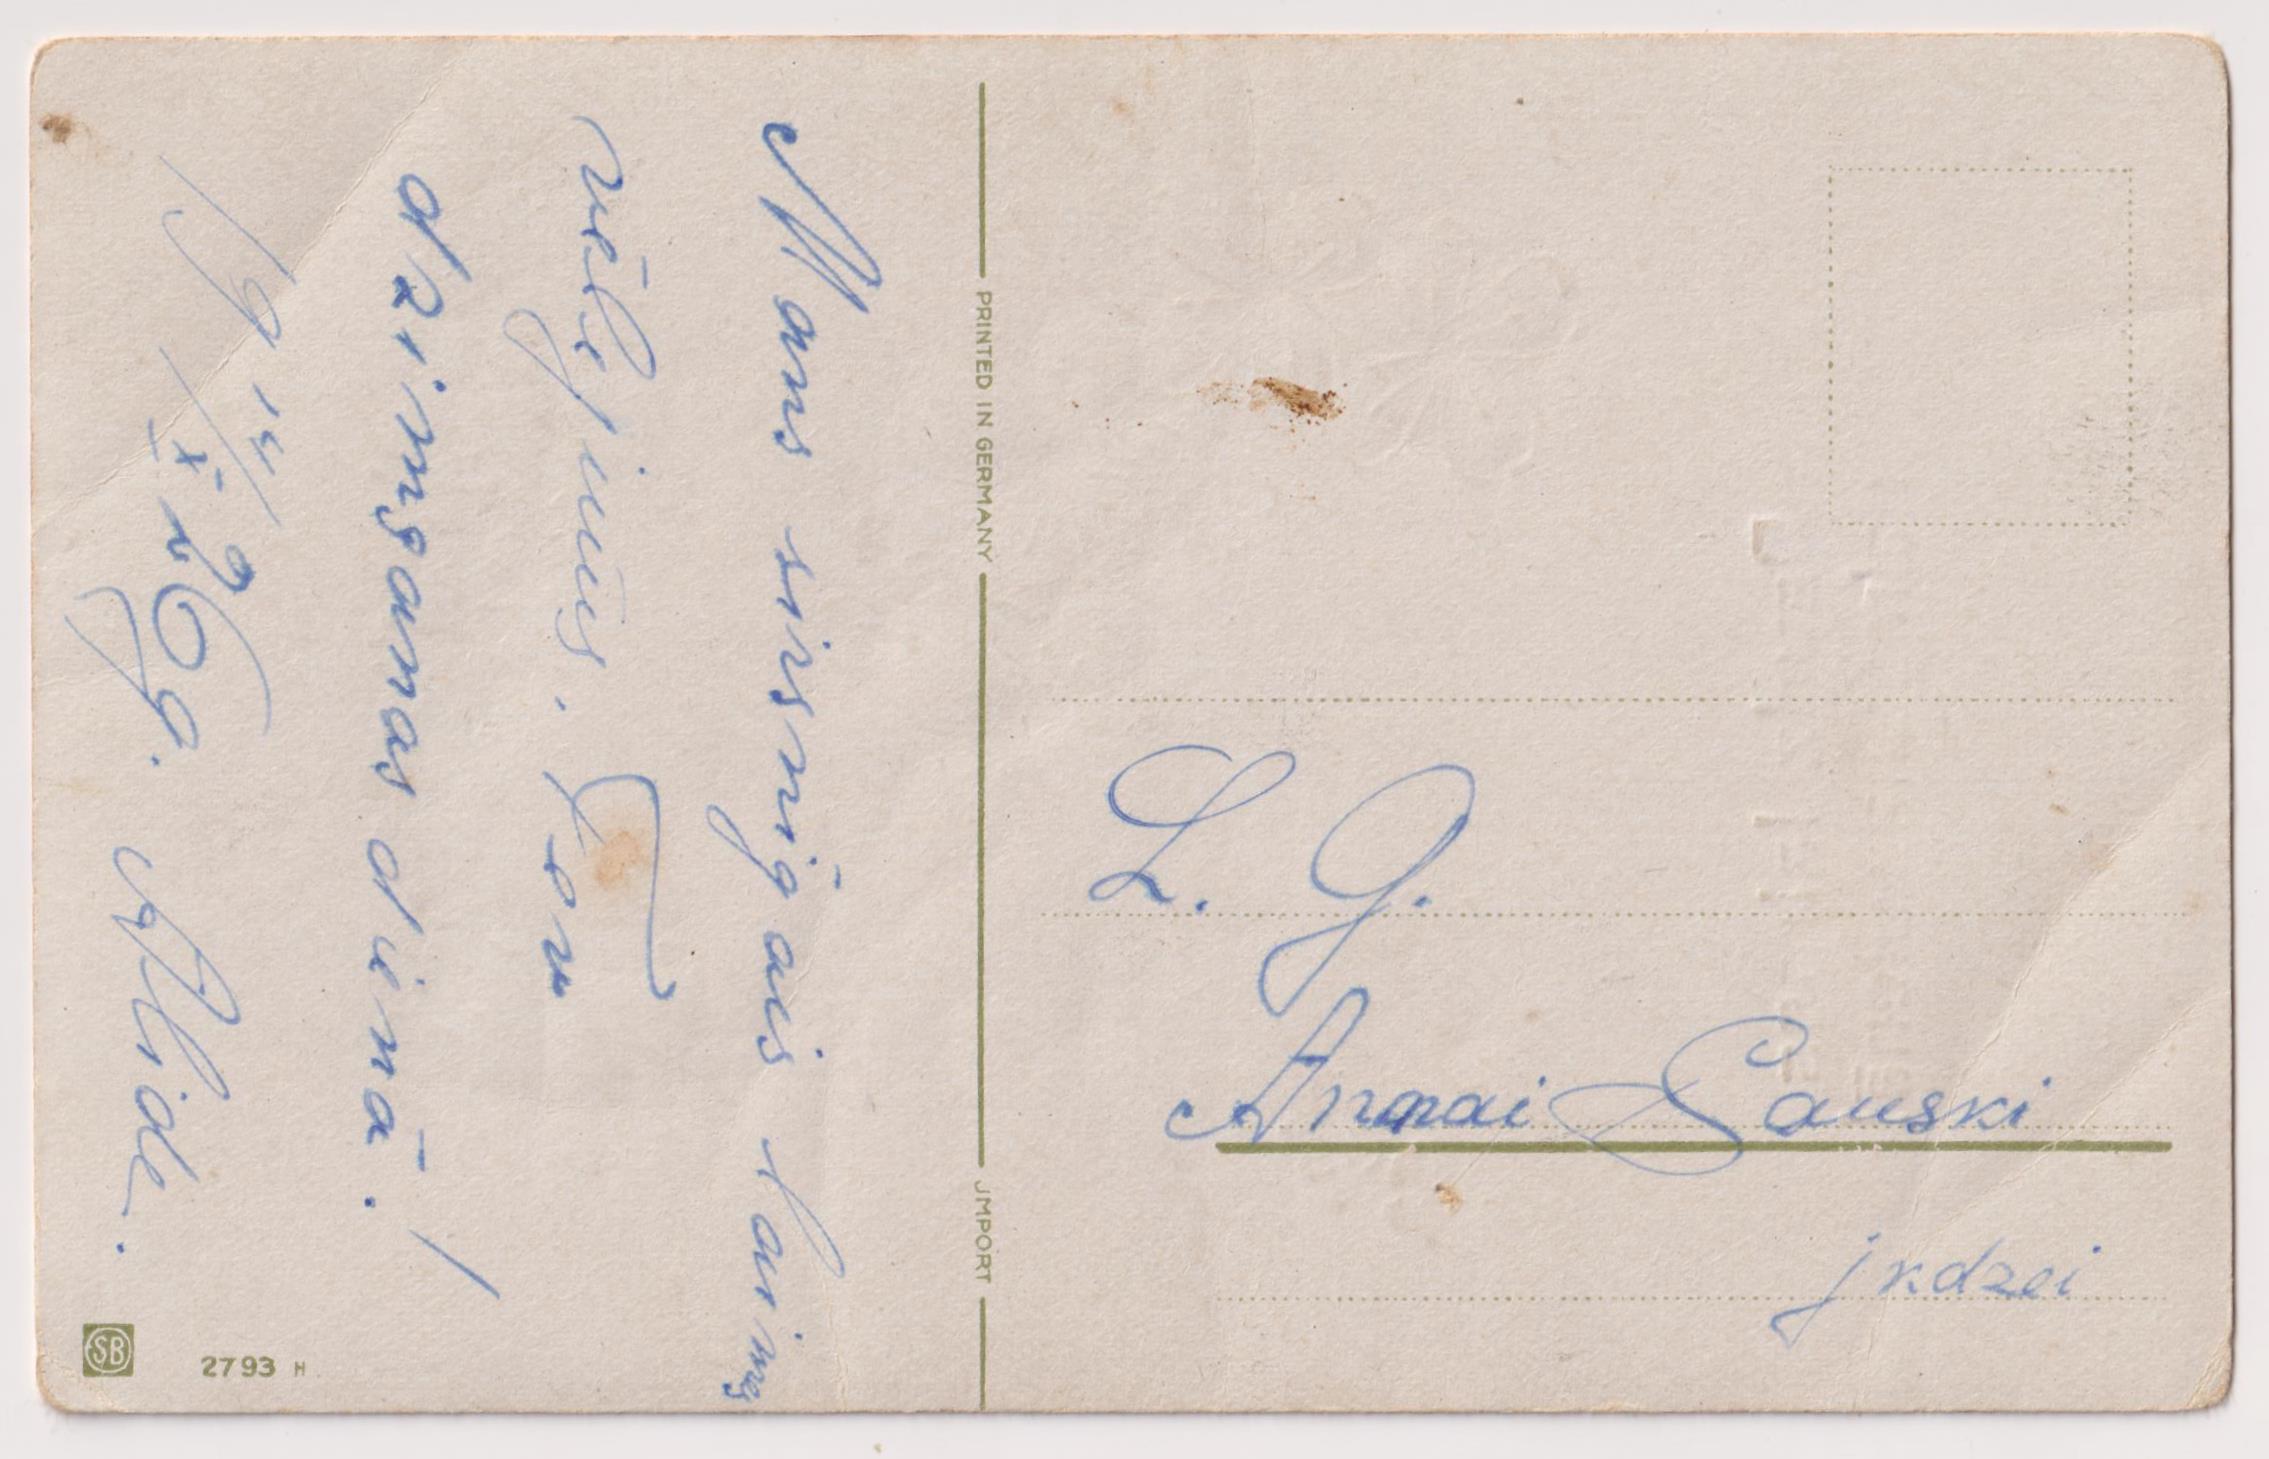 Mans sirsnīgais laimes
vēlējums. Tev
dzimšanas dienā!
19 15/X 26 g. Alide.
PRINTED IN GERMANY
JMPORT
L. G.
Annai Sauski
jkdzei
SB
2793 H